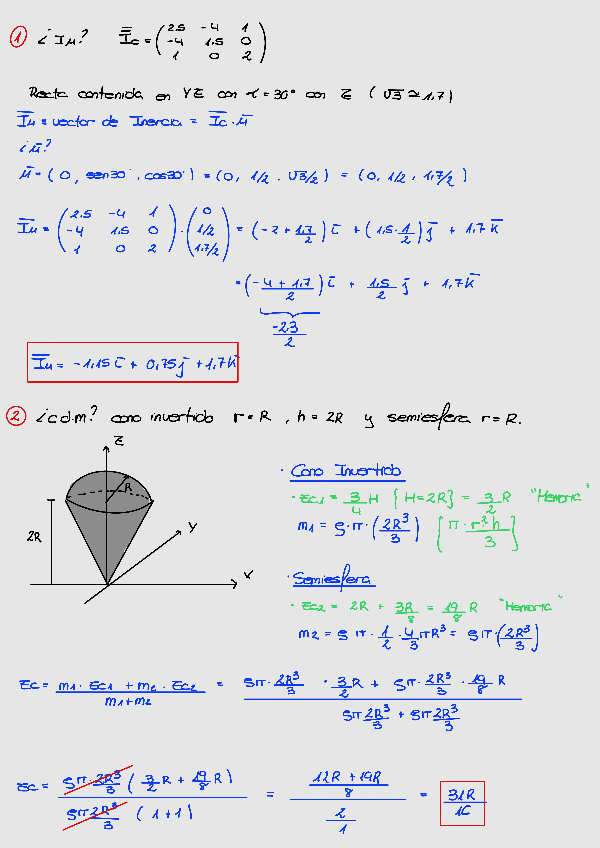 1 ¿Iμ? I̿c = ( 2.5 -4 1 / -4 1.5 0 / 1 0 2 )
Recta contenida en YZ con α = 30° con Z (√3 ≃ 1,7)
Iμ = vector de Inercia = Ic · μ̄
¿μ̄?
μ̄ = (0, sen30°, cos30°) = (0, 1/2, √3/2) = (0, 1/2, 1,7/2)
Iμ = ( 2.5 -4 1 / -4 1.5 0 / 1 0 2 ) · ( 0 / 1/2 / 1.7/2 ) = (-2 + 1,7/2) i + (1,5·1/2) j + 1.7 k
= (-4 + 1,7 / 2) i + 1,5/2 j + 1,7 k
-2.3/2
Iμ = -1,15 i + 0,75 j + 1,7 k
2 ¿c.d.m? cono invertido r = R, h = 2R y semiesfera r = R.
Z
R
2R
Y
X
· Cono Invertido
· zc1 = 3/4 H {H=2R} = 3/2 R "Memoria"
m1 = ρ·π·(2R³/3) [π · r²h/3]
· Semiesfera
· zc2 = 2R + 3R/8 = 19/8 R "Memoria"
m2 = ρ π · 1/2 · 4/3 πR³ = ρπ·(2R³/3)
zc = m1 · zc1 + m2 · zc2 / m1+m2 = ρπ · 2R³/3 · 3/2 R + ρπ · 2R³/3 · 19/8 R / ρπ 2R³/3 + ρπ 2R³/3
zc = ρπ · 2R³/3 (3/2 R + 19/8 R) / ρπ 2R³/3 (1+1) = 12R + 19R / 8 / 2/1 = 31R/16